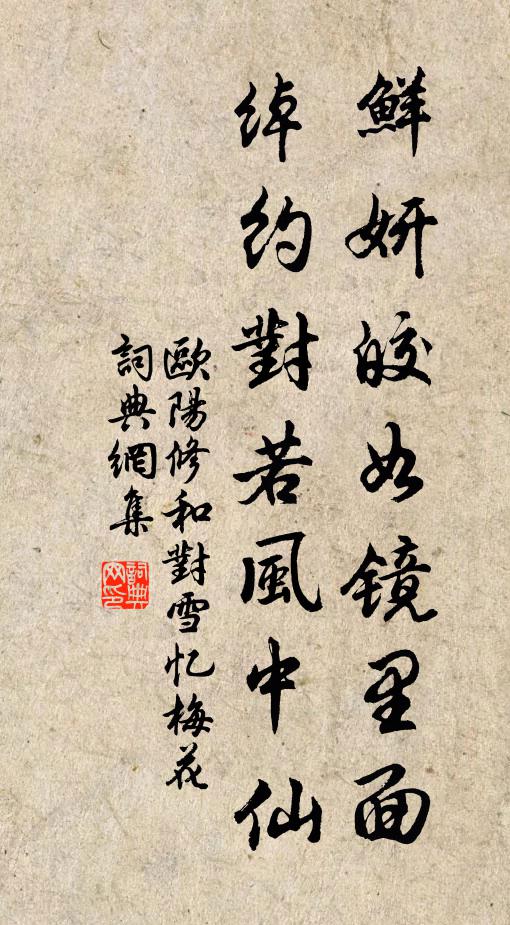 鮮妍皎如镜里面
绰约對若風中仙
歐陽修和對雪忆梅花
詞典網集
詞典网印